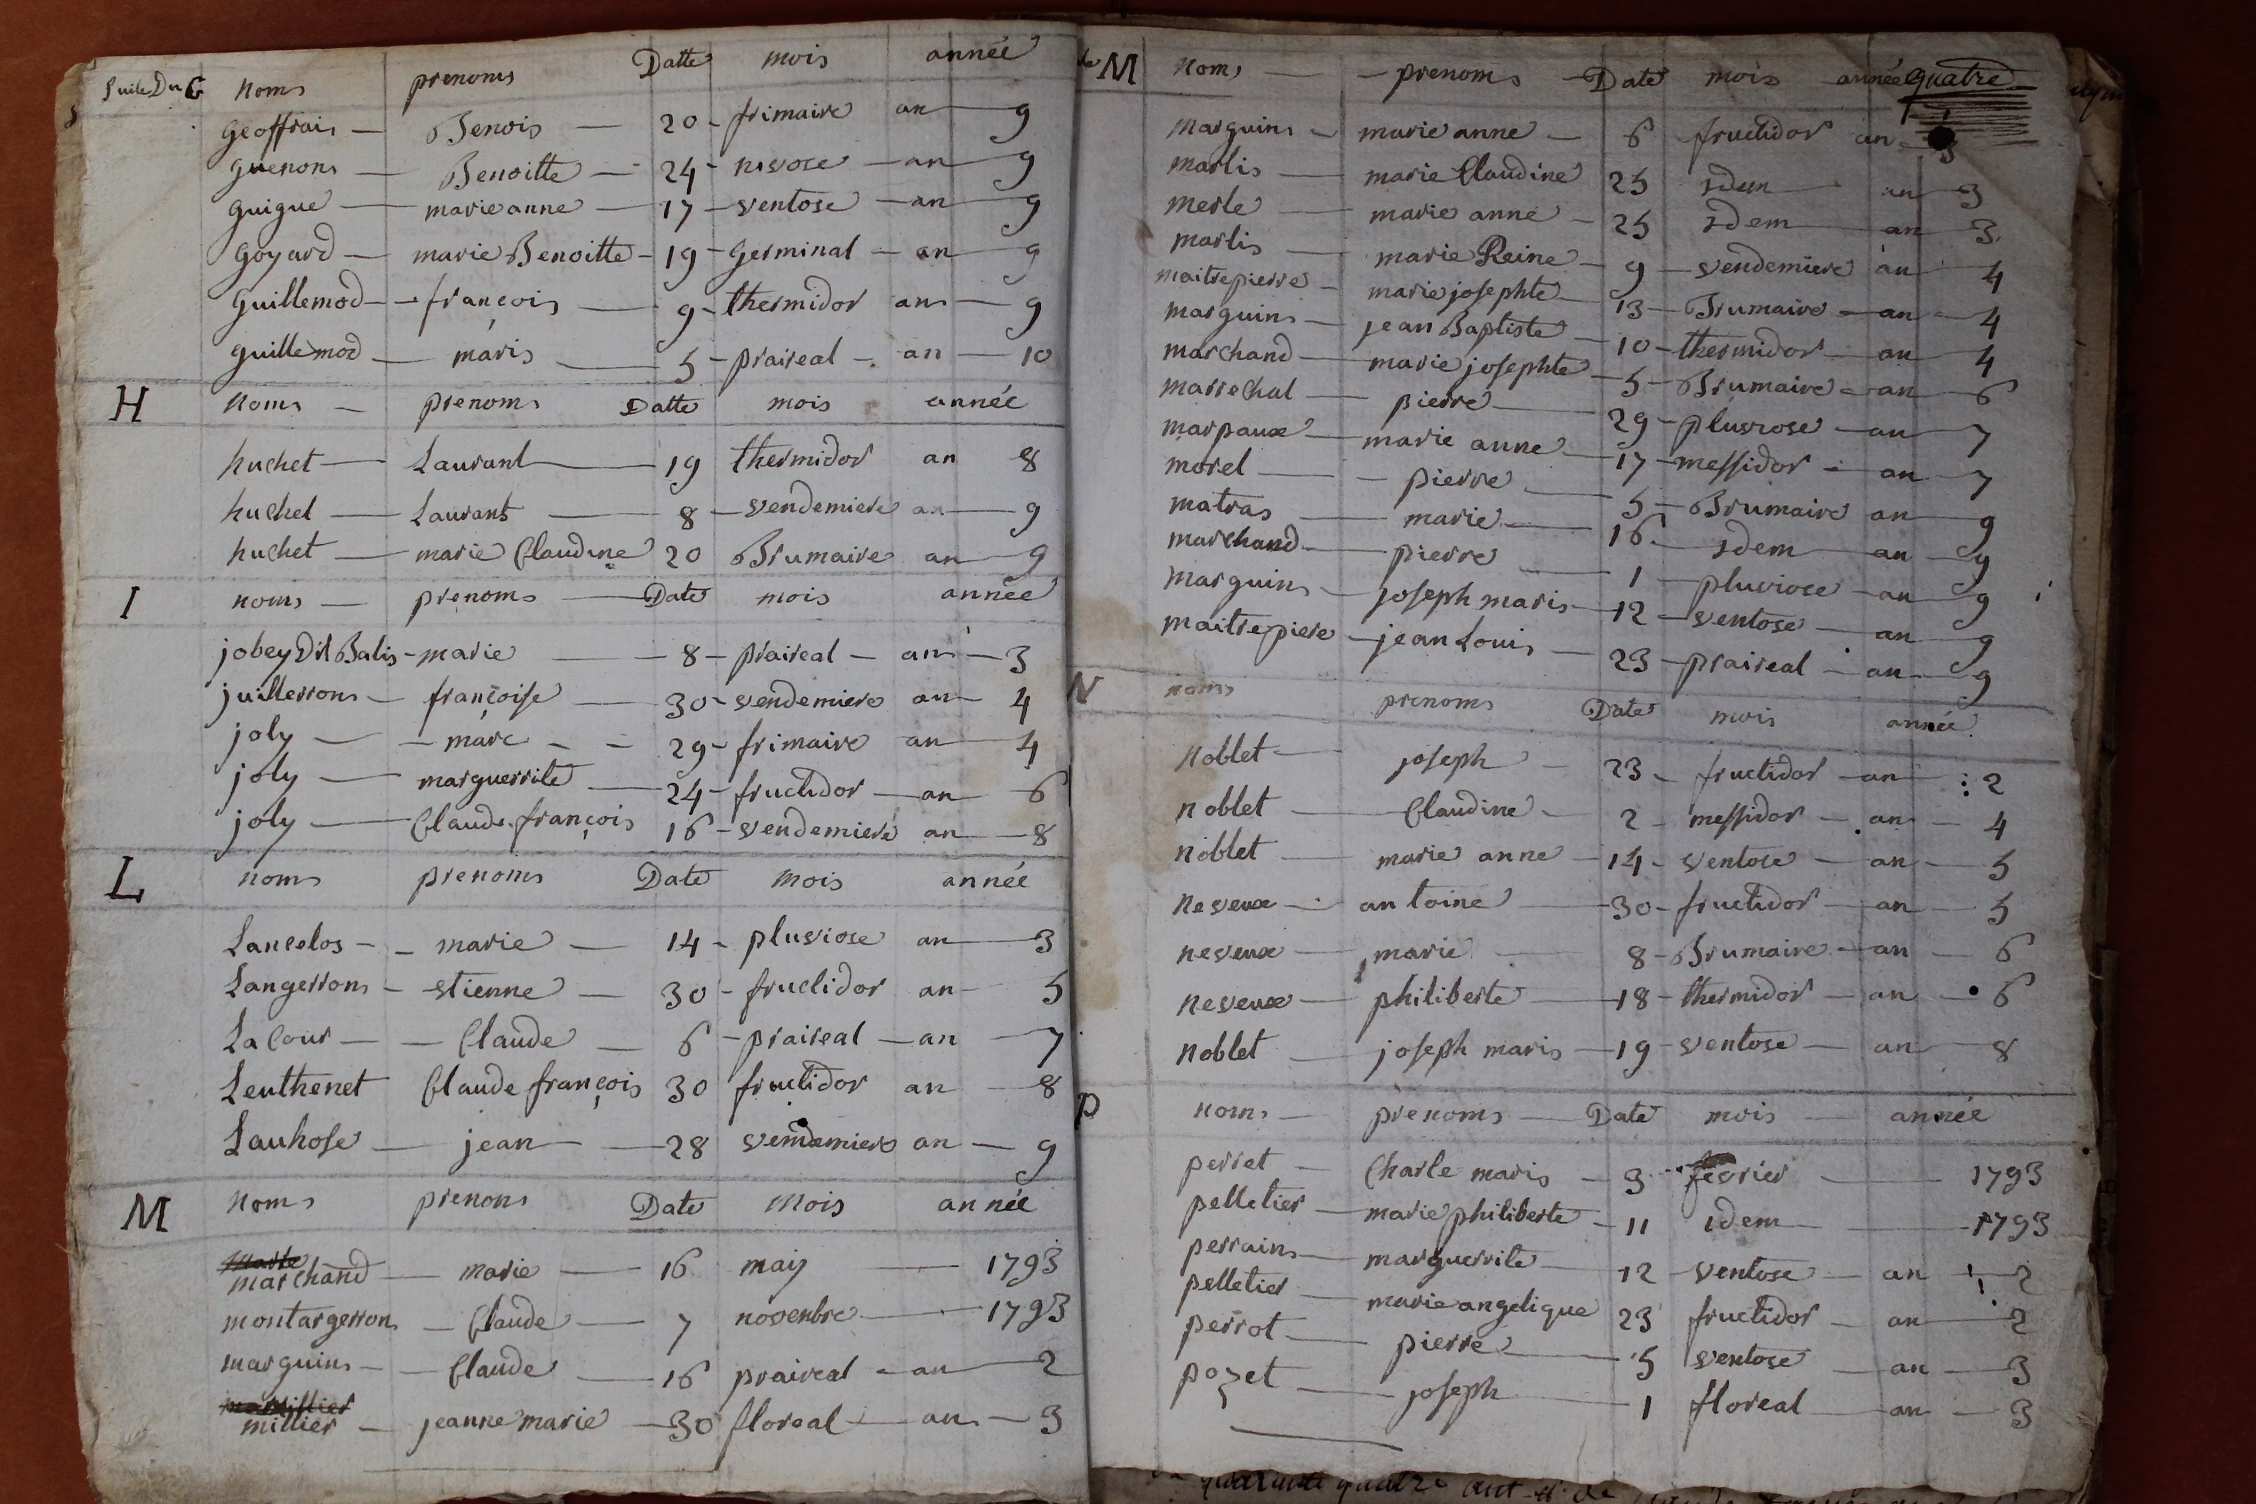 Suite Du G Noms prenoms Datte mois année
geoffrais Benois 20 frimaire an 9
guenons Benoitte 24 nivose an 9
guigue marie anne 17 ventose an 9
goyard marie Benoitte 19 germinal an 9
guillemod françois 9 thermidor an 9
guillemod maris 5 praireal an 10
H Noms prenoms Datte mois année
huchet Laurant 19 thermidor an 8
huchet Laurant 8 vendemiere an 9
huchet marie Claudine 20 Brumaire an 9
I noms prenoms Date mois année
jobey Dit Balis marie 8 praireal an 3
juillerrons françoise 30 vendemiere an 4
joly marc 29 frimaire an 4
joly marguerrite 24 fructidor an 6
joly Claude françois 16 vendemiere an 8
L noms prenoms Date mois année
Lancelos marie 14 pluviose an 3
Langerrons etienne 30 fructidor an 5
La Cour Claude 6 praireal an 7
Leuthenet Claude françois 30 fructidor an 8
Lauhose jean 28 vendemiere an 9
M Noms prenons Date Mois année
marchand marie 16 may 1793
montargerrons Claude 7 novenbre 1793
marguins Claude 16 praireal an 2
millier jeanne marie 30 floreal an 3
de M Noms prenoms Date mois année quatre
Marguins marie anne 6 fructidor an 3
marlis marie Claudine 25 idem an 3
merle marie anne 25 idem an 3
marlis marie Reine 9 vendemiere an 4
maitrepierre marie josephte 13 Brumaire an 4
marguins jean Baptiste 10 thermidor an 4
marchand marie josephte 5 Brumaire an 6
marrechal pierre 29 pluviose an 7
marpaux marie anne 17 messidor an 7
morel pierre 5 Brumaire an 9
matras marie 16 idem an 9
marchand pierre 1 pluviose an 9
marguins joseph maris 12 ventose an 9
maitrepiere jean Louis 23 praireal an 9
N noms prenoms Date mois année
Noblet joseph 23 fructidor an 2
noblet Claudine 2 messidor an 4
noblet marie anne 14 ventose an 5
neveux antoine 30 fructidor an 5
neveux marie 8 Brumaire an 6
neveux philiberte 18 thermidor an 6
noblet joseph maris 19 ventose an 8
P noms prenoms Date mois année
perret Charle maris 3 fevrier 1793
pelletier marie philiberte 11 idem 1793
perrains marguerrite 12 ventose an 2
pelletier marie angelique 23 fructidor an 2
perrot pierre 5 ventose an 3
pozet joseph 1 floreal an 3
quarante quatre